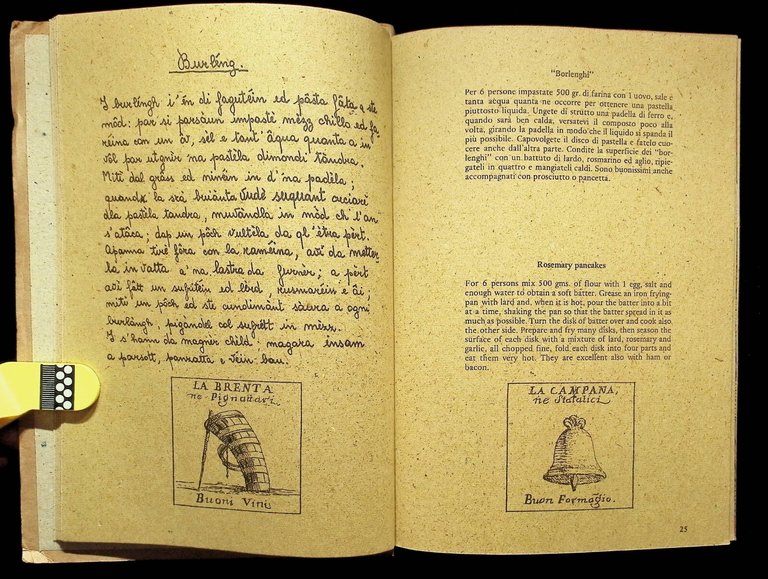 Burléng.
I burlèngh i'én di fagutéin ed pâsta fâta a ste
môd: par si parsòun impastè mègg chillo ed fa=
réina con un ôv, sèl e tant' âqua quanta a in
vól par utgnir 'na pastèla dimondi tandra.
Mitì dal grass ed ninén in d' 'na padèla;
quando la srà bruianta vudè suquant cuciarè
dla pastèla tandra, muvàndla in mòd ch' l'an
s'ataca; dap un póch vultèla da gl' ètra pèrt.
Apanna tirè fôra con la raméina, avì da metter=
la in vatta a 'na lastra da furnèr; a pèrt
avì fàtt un sufrétt ed lèrd, rusmaréin e âi;
mitì un póch ed ste cundimànt saura a ogni
burlàngh, pigandel col sufrétt in mèzz.
I s'hann da magnèr child: magara insam
a parsótt, panzatta e véin bòn.
LA BRENTA
ne Pignattari
Buoni Vini
"Borlenghi"
Per 6 persone impastate 500 gr. di farina con 1 uovo, sale e
tanta acqua quanta ne occorre per ottenere una pastella
piuttosto liquida. Ungete di strutto una padella di ferro e,
quando sarà ben calda, versatevi il composto poco alla
volta, girando la padella in modo che il liquido si spanda il
più possibile. Capovolgete il disco di pastella e fatelo cuo-
cere anche dall'altra parte. Condite la superficie dei "bor-
lenghi" con un battuto di lardo, rosmarino ed aglio, ripie-
gateli in quattro e mangiateli caldi. Sono buonissimi anche
accompagnati con prosciutto o pancetta.
Rosemary pancakes
For 6 persons mix 500 gms. of flour with 1 egg, salt and
enough water to obtain a soft batter. Grease an iron frying-
pan with lard and, when it is hot, pour the batter into it a bit
at a time, shaking the pan so that the batter spread in it as
much as possible. Turn the disk of batter over and cook also
the other side. Prepare and fry many disks, then season the
surface of each disk with a mixture of lard, rosemary and
garlic, all chopped fine, fold each disk into four parts and
eat them very hot. They are excellent also with ham or
bacon.
LA CAMPANA,
ne Statatici
Buon Formagio.
25